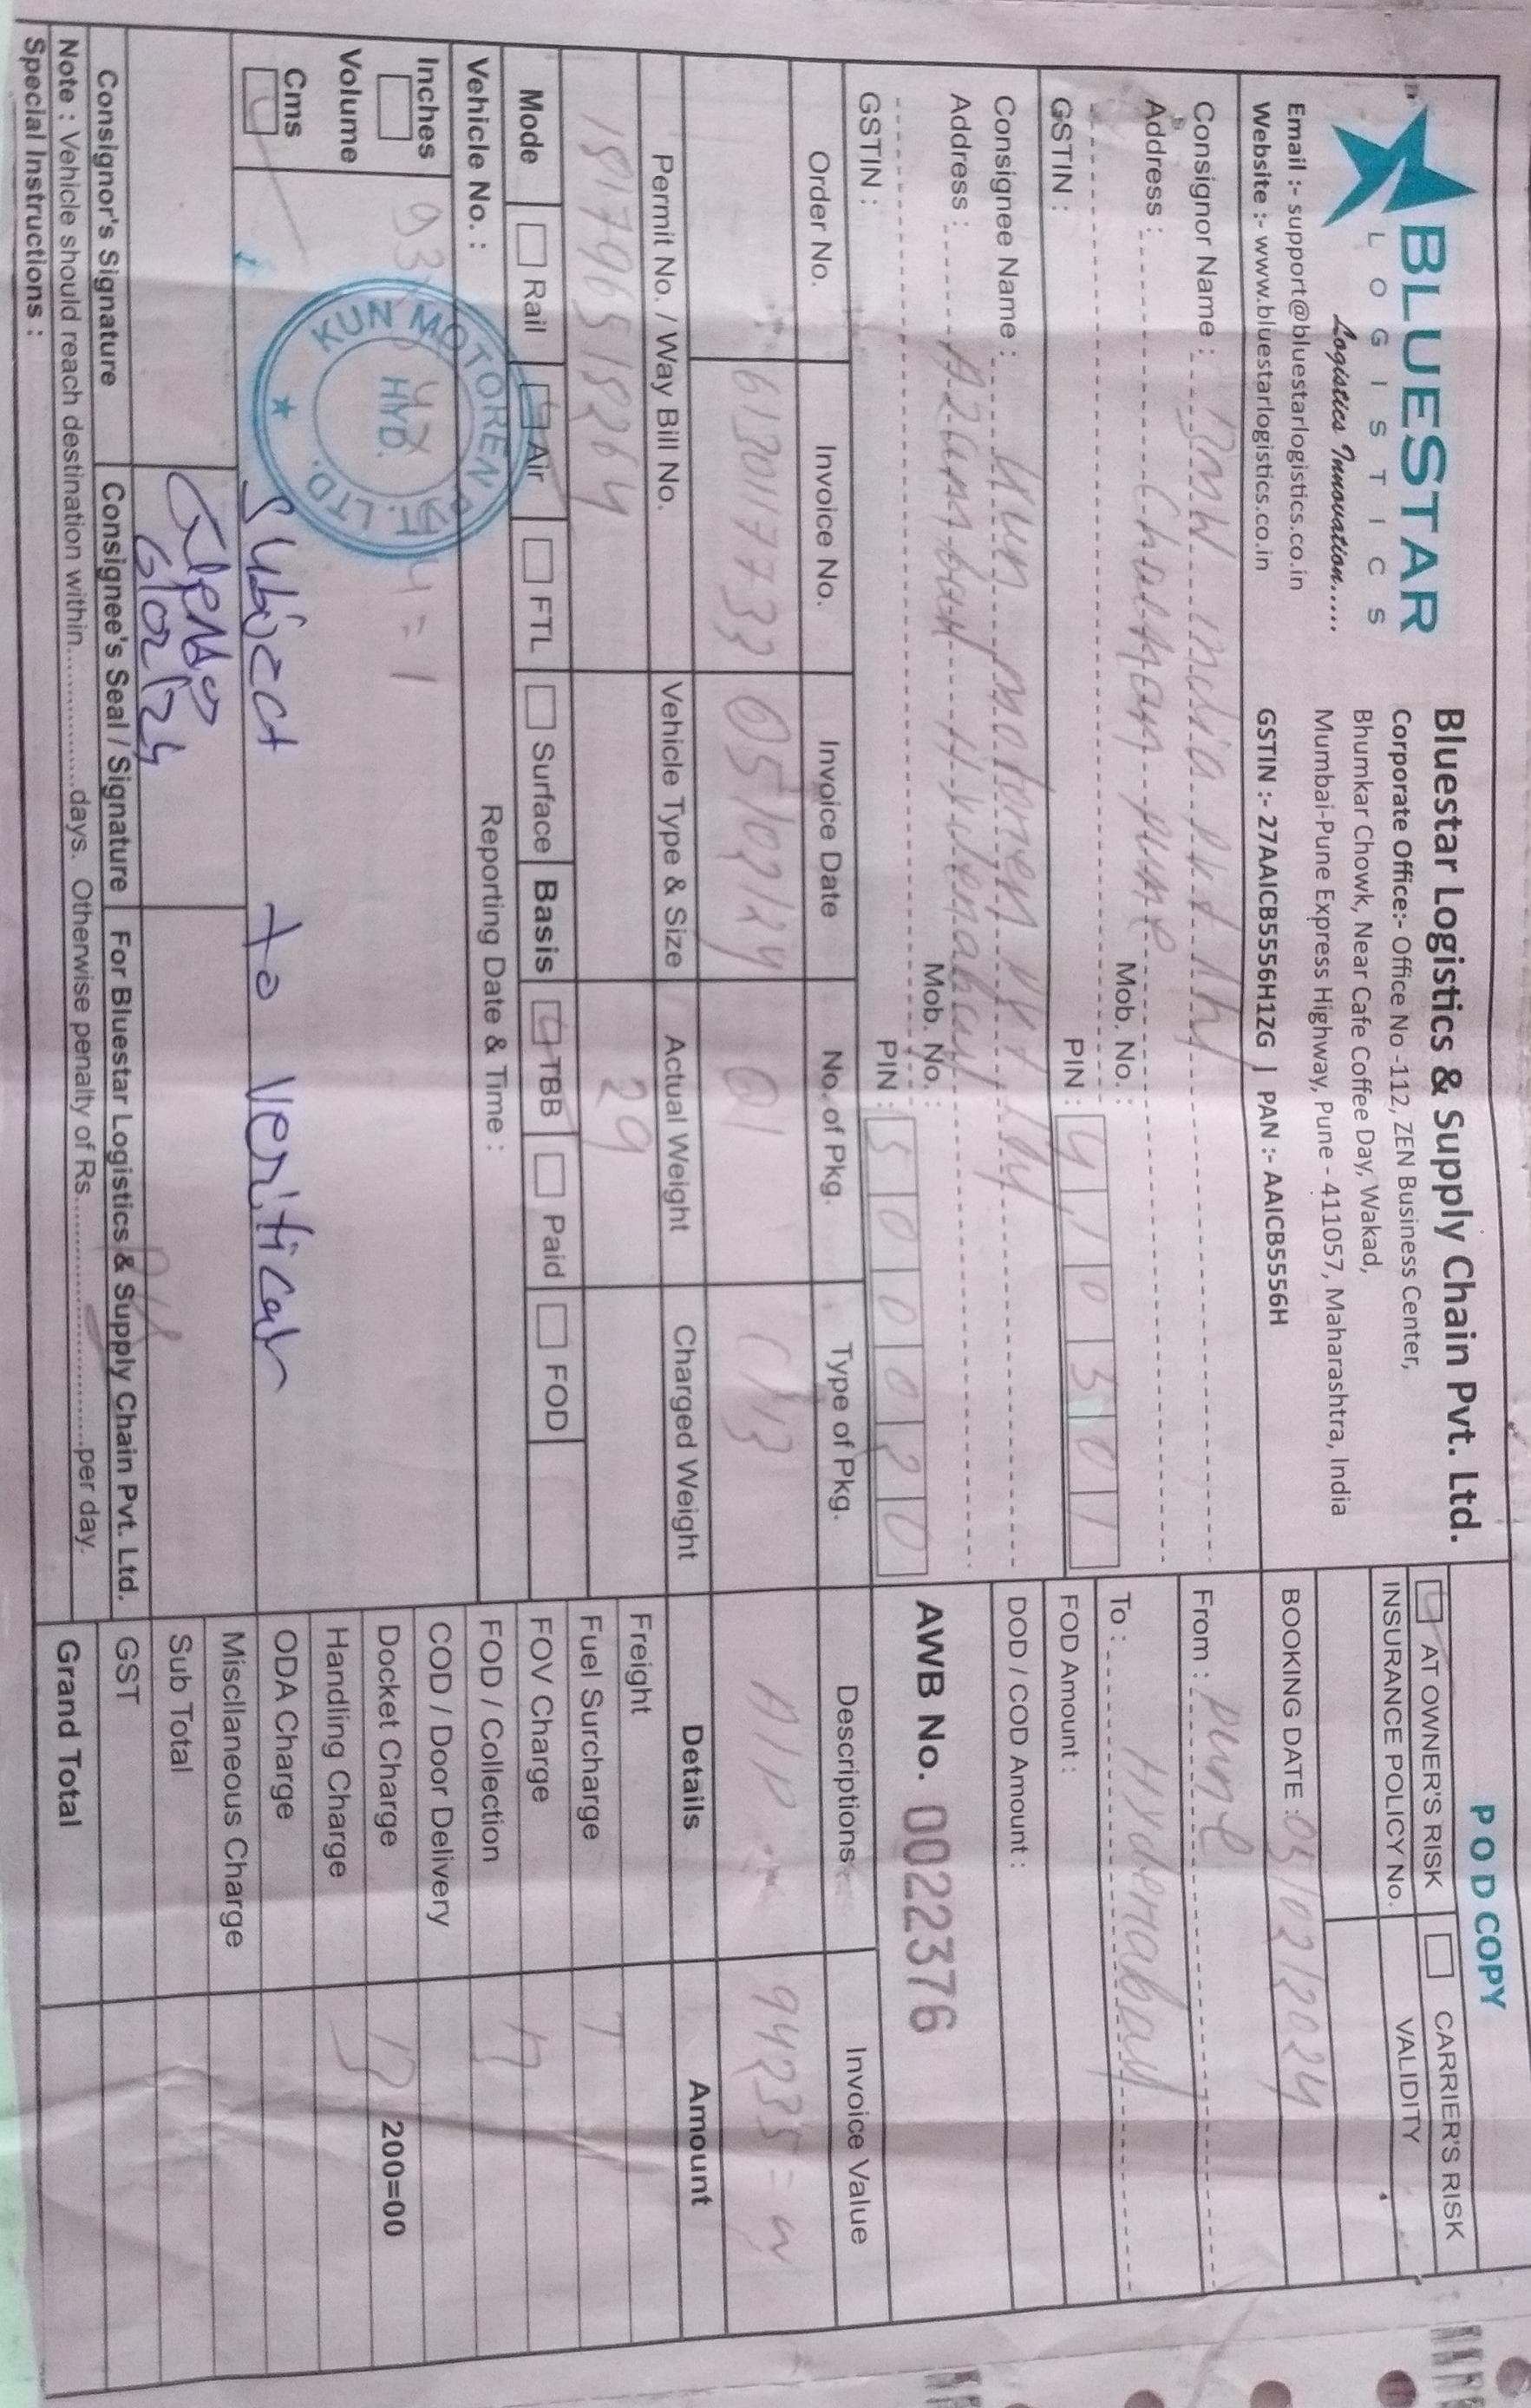 BLUESTAR
LOGISTICS
Logistics Innovation.....
Email :- support@bluestarlogistics.co.in
Website :- www.bluestarlogistics.co.in
Bluestar Logistics & Supply Chain Pvt. Ltd.
Corporate Office:- Office No -112, ZEN Business Center,
Bhumkar Chowk, Near Cafe Coffee Day, Wakad,
Mumbai-Pune Express Highway, Pune - 411057, Maharashtra, India
GSTIN :- 27AAICB5556H1ZG | PAN :- AAICB5556H
POD COPY
AT OWNER'S RISK CARRIER'S RISK
INSURANCE POLICY No. VALIDITY
BOOKING DATE : 05/02/2024
Consignor Name : BMW india Pvt ltd
Address : pune
Mob. No. :
PIN : 410501
GSTIN :
From : pune
To : Hyderabad
FOD Amount :
DOD / COD Amount :
Consignee Name : Kun motoren Pvt ltd
Address : Hyderabad
Mob. No. :
PIN : 500020
GSTIN :
AWB No. 0022376
Order No. Invoice No. Invoice Date No. of Pkg. Type of Pkg. Descriptions Invoice Value
6130117733 05/02/24 01 C/B A/P 94235=
Permit No. / Way Bill No. Vehicle Type & Size Actual Weight Charged Weight Details Amount
181796518264 29
Mode Rail Air FTL Surface Basis TBB Paid FOD
Vehicle No. : Reporting Date & Time :
Inches
Volume
Cms
KUN MOTOREN PVT. LTD.
HYD.
Subject to verificat
6/02/24
Freight
Fuel Surcharge T
FOV Charge
FOD / Collection
COD / Door Delivery
Docket Charge B 200=00
Handling Charge
ODA Charge
Miscllaneous Charge
Sub Total
GST
Grand Total
Consignor's Signature Consignee's Seal / Signature For Bluestar Logistics & Supply Chain Pvt. Ltd.
Note : Vehicle should reach destination within.................days. Otherwise penalty of Rs..............................per day.
Special Instructions :